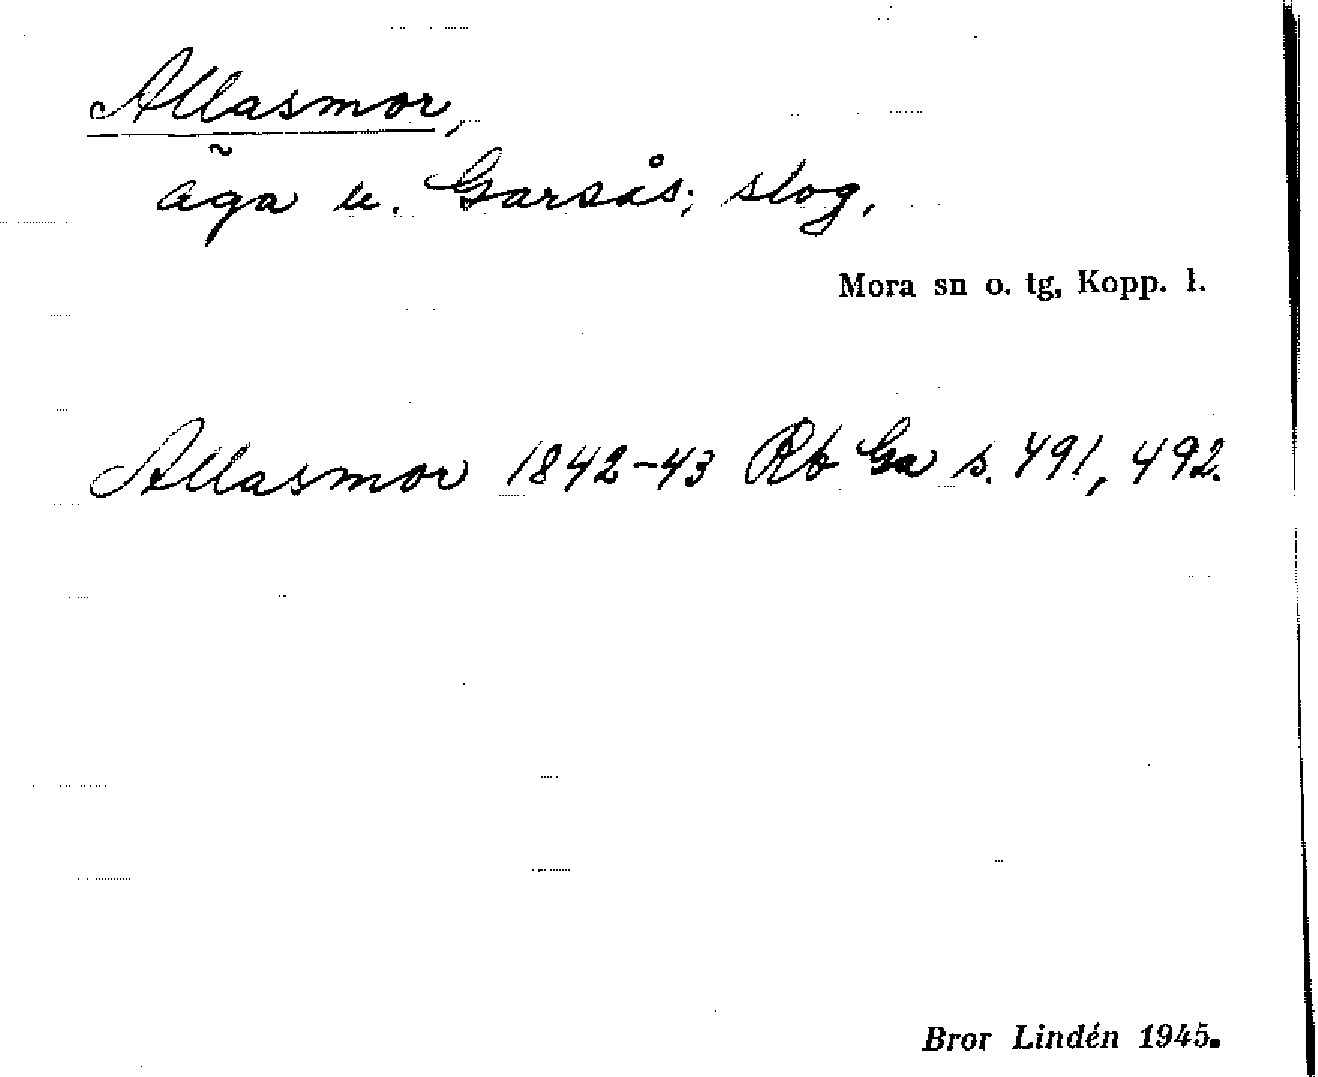 Allasmor,
äga u. Garsås; slog,
Mora sn o. tg, Kopp. l.
Allasmor 1842-43 Rb Ga s. 491, 492.
Bror Lindén 1945.